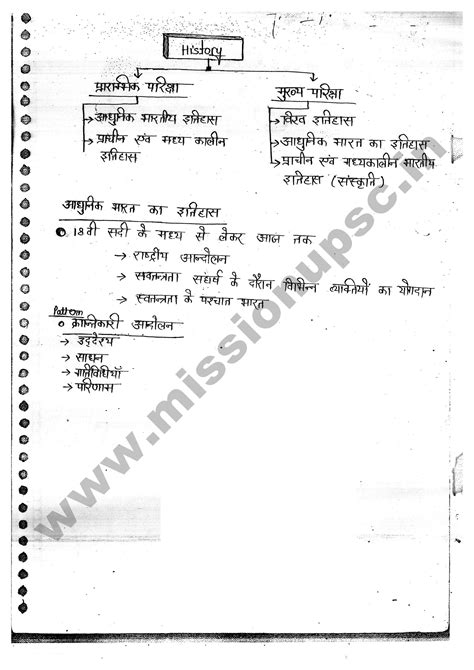 History
प्रारम्भिक परिक्षा
→ आधुनिक भारतीय इतिहास
→ प्राचीन एवं मध्य कालीन
इतिहास
मुख्य परिक्षा
→ विश्व इतिहास
→ आधुनिक भारत का इतिहास
→ प्राचीन एवं मध्यकालीन भारतीय
इतिहास (संस्कृति)
आधुनिक भारत का इतिहास
18वी सदी के मध्य से लेकर आज तक
→ राष्ट्रीय आन्दोलन
→ स्वतन्त्रता संघर्ष के दौरान विभिन्न व्यक्तियों का योगदान
→ स्वतन्त्रता के पश्चात भारत
Pattern
क्रान्तिकारी आंदोलन
→ उद्देश्य
→ साधन
→ गतिविधियाँ
→ परिणाम
www.missionupsc.in